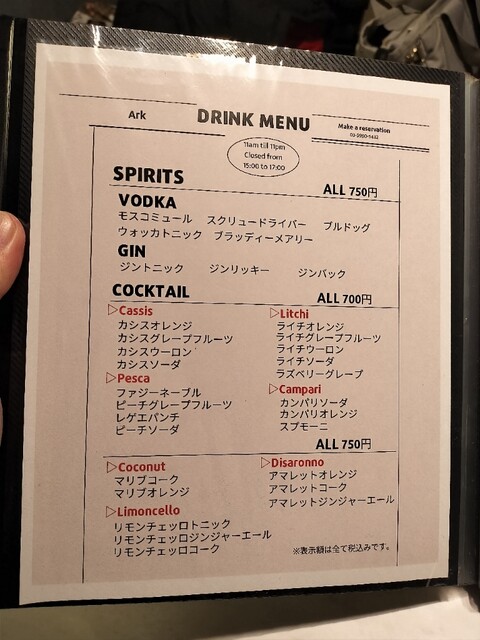 Ark
DRINK MENU
Make a reservation
11am till 11pm
Closed from
15:00 to 17:00
SPIRITS
ALL 750円
VODKA
モスコミュール スクリュードライバー ブルドッグ
ウォッカトニック ブラッディーメアリー
GIN
ジントニック ジンリッキー ジンバック
COCKTAIL
ALL 700円
▷Cassis
カシスオレンジ
カシスグレープフルーツ
カシスウーロン
カシスソーダ
▷Litchi
ライチオレンジ
ライチグレープフルーツ
ライチウーロン
ライチソーダ
ラズベリーグレープ
▷Pesca
ファジーネーブル
ピーチグレープフルーツ
レゲエパンチ
ピーチソーダ
▷Campari
カンパリソーダ
カンパリオレンジ
スプモーニ
ALL 750円
▷Coconut
マリブコーク
マリブオレンジ
▷Disaronno
アマレットオレンジ
アマレットコーク
アマレットジンジャーエール
▷Limoncello
リモンチェッロトニック
リモンチェッロジンジャーエール
リモンチェッロコーク
※表示額は全て税込みです。